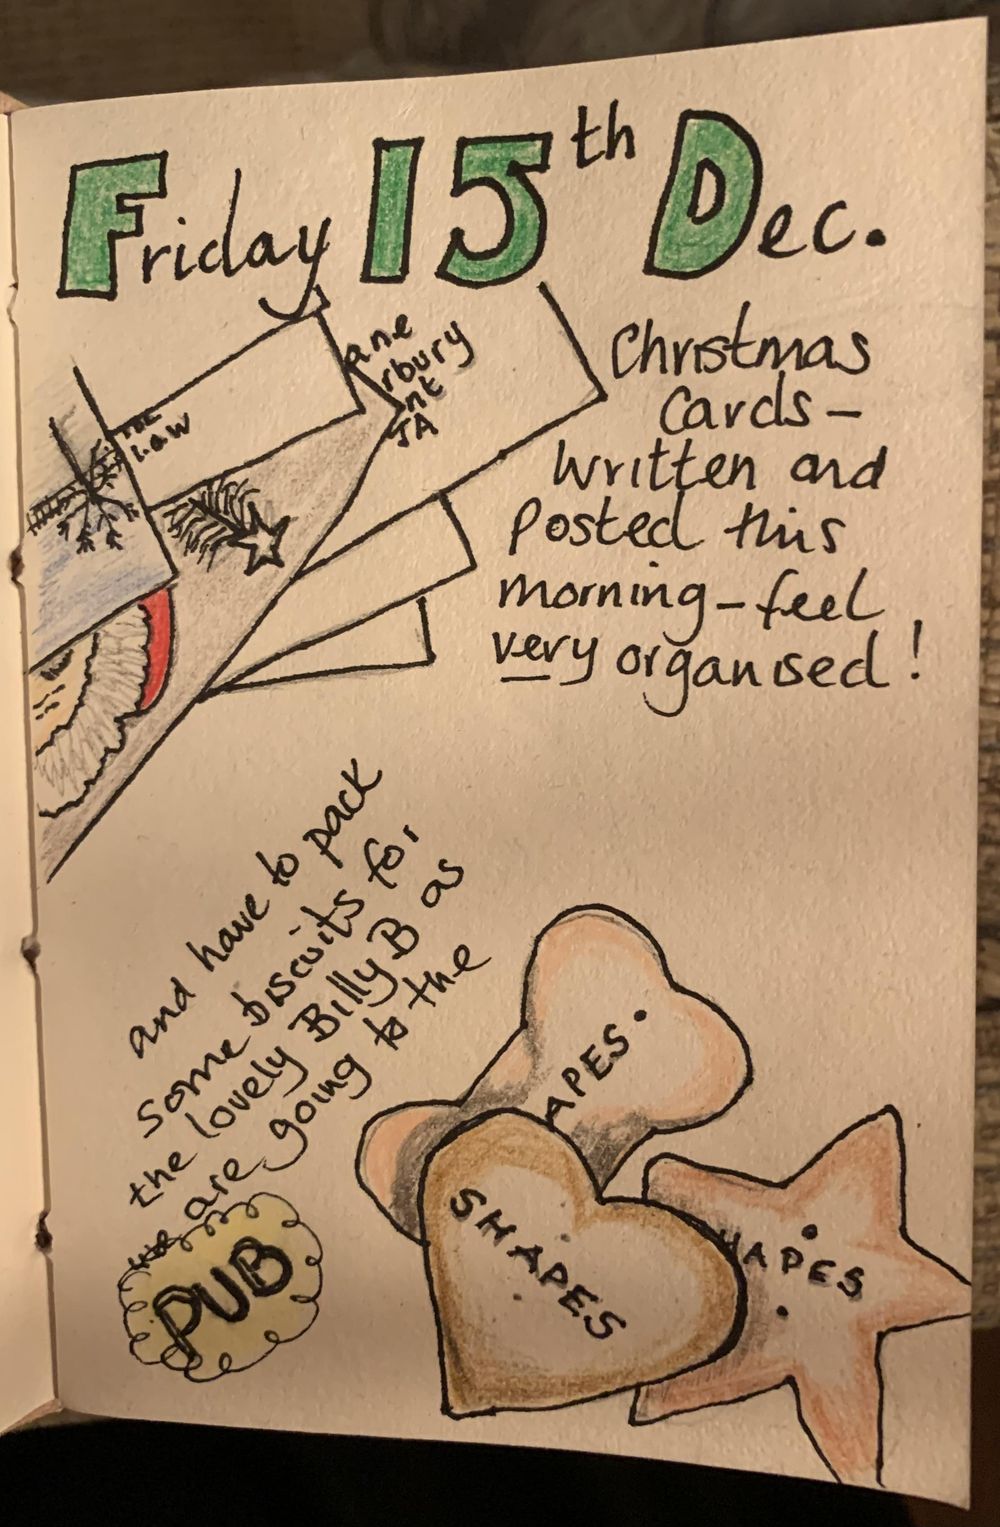 Friday 15th Dec.
Christmas
Cards –
Written and
Posted this
morning – feel
very organised!
ane
rbury
nt
JA
THE
LAW
and have to pack
some biscuits for
the lovely Billy B as
we are going to the
PUB
APES
SHAPES
HAPES